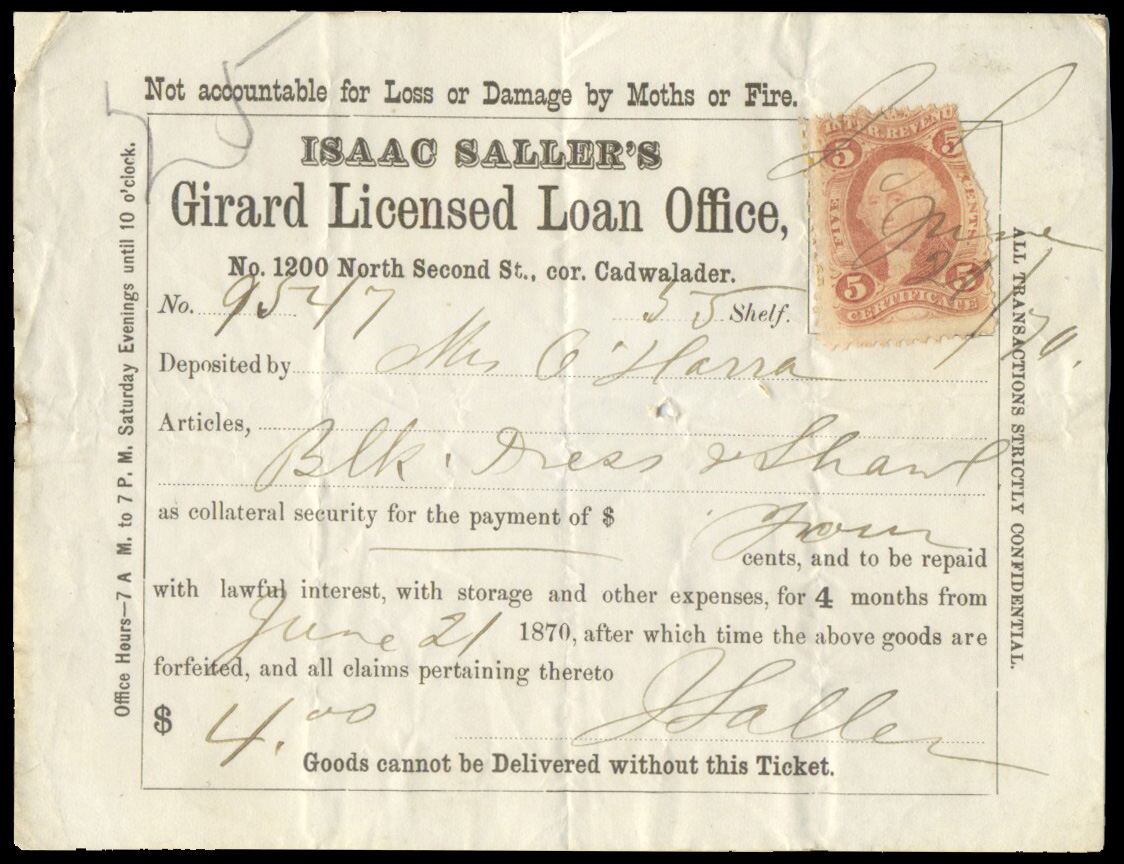 Not accountable for Loss or Damage by Moths or Fire.
ISAAC SALLER'S
Girard Licensed Loan Office,
No. 1200 North Second St., cor. Cadwalader.
No. 9547 55 Shelf.
Deposited by Mrs O'Harra
Articles,
Blk. Dress & Shawl
as collateral security for the payment of $ Four
cents, and to be repaid
with lawful interest, with storage and other expenses, for 4 months from
June 21 1870, after which time the above goods are
forfeited, and all claims pertaining thereto
$ 4.00 I Saller
Goods cannot be Delivered without this Ticket.
Office Hours—7 A M. to 7 P. M. Saturday Evenings until 10 o'clock.
ALL TRANSACTIONS STRICTLY CONFIDENTIAL.
INTER. REVENUE
5 5
FIVE CENTS
5 5
CERTIFICATE
I S
June
21/70.
55